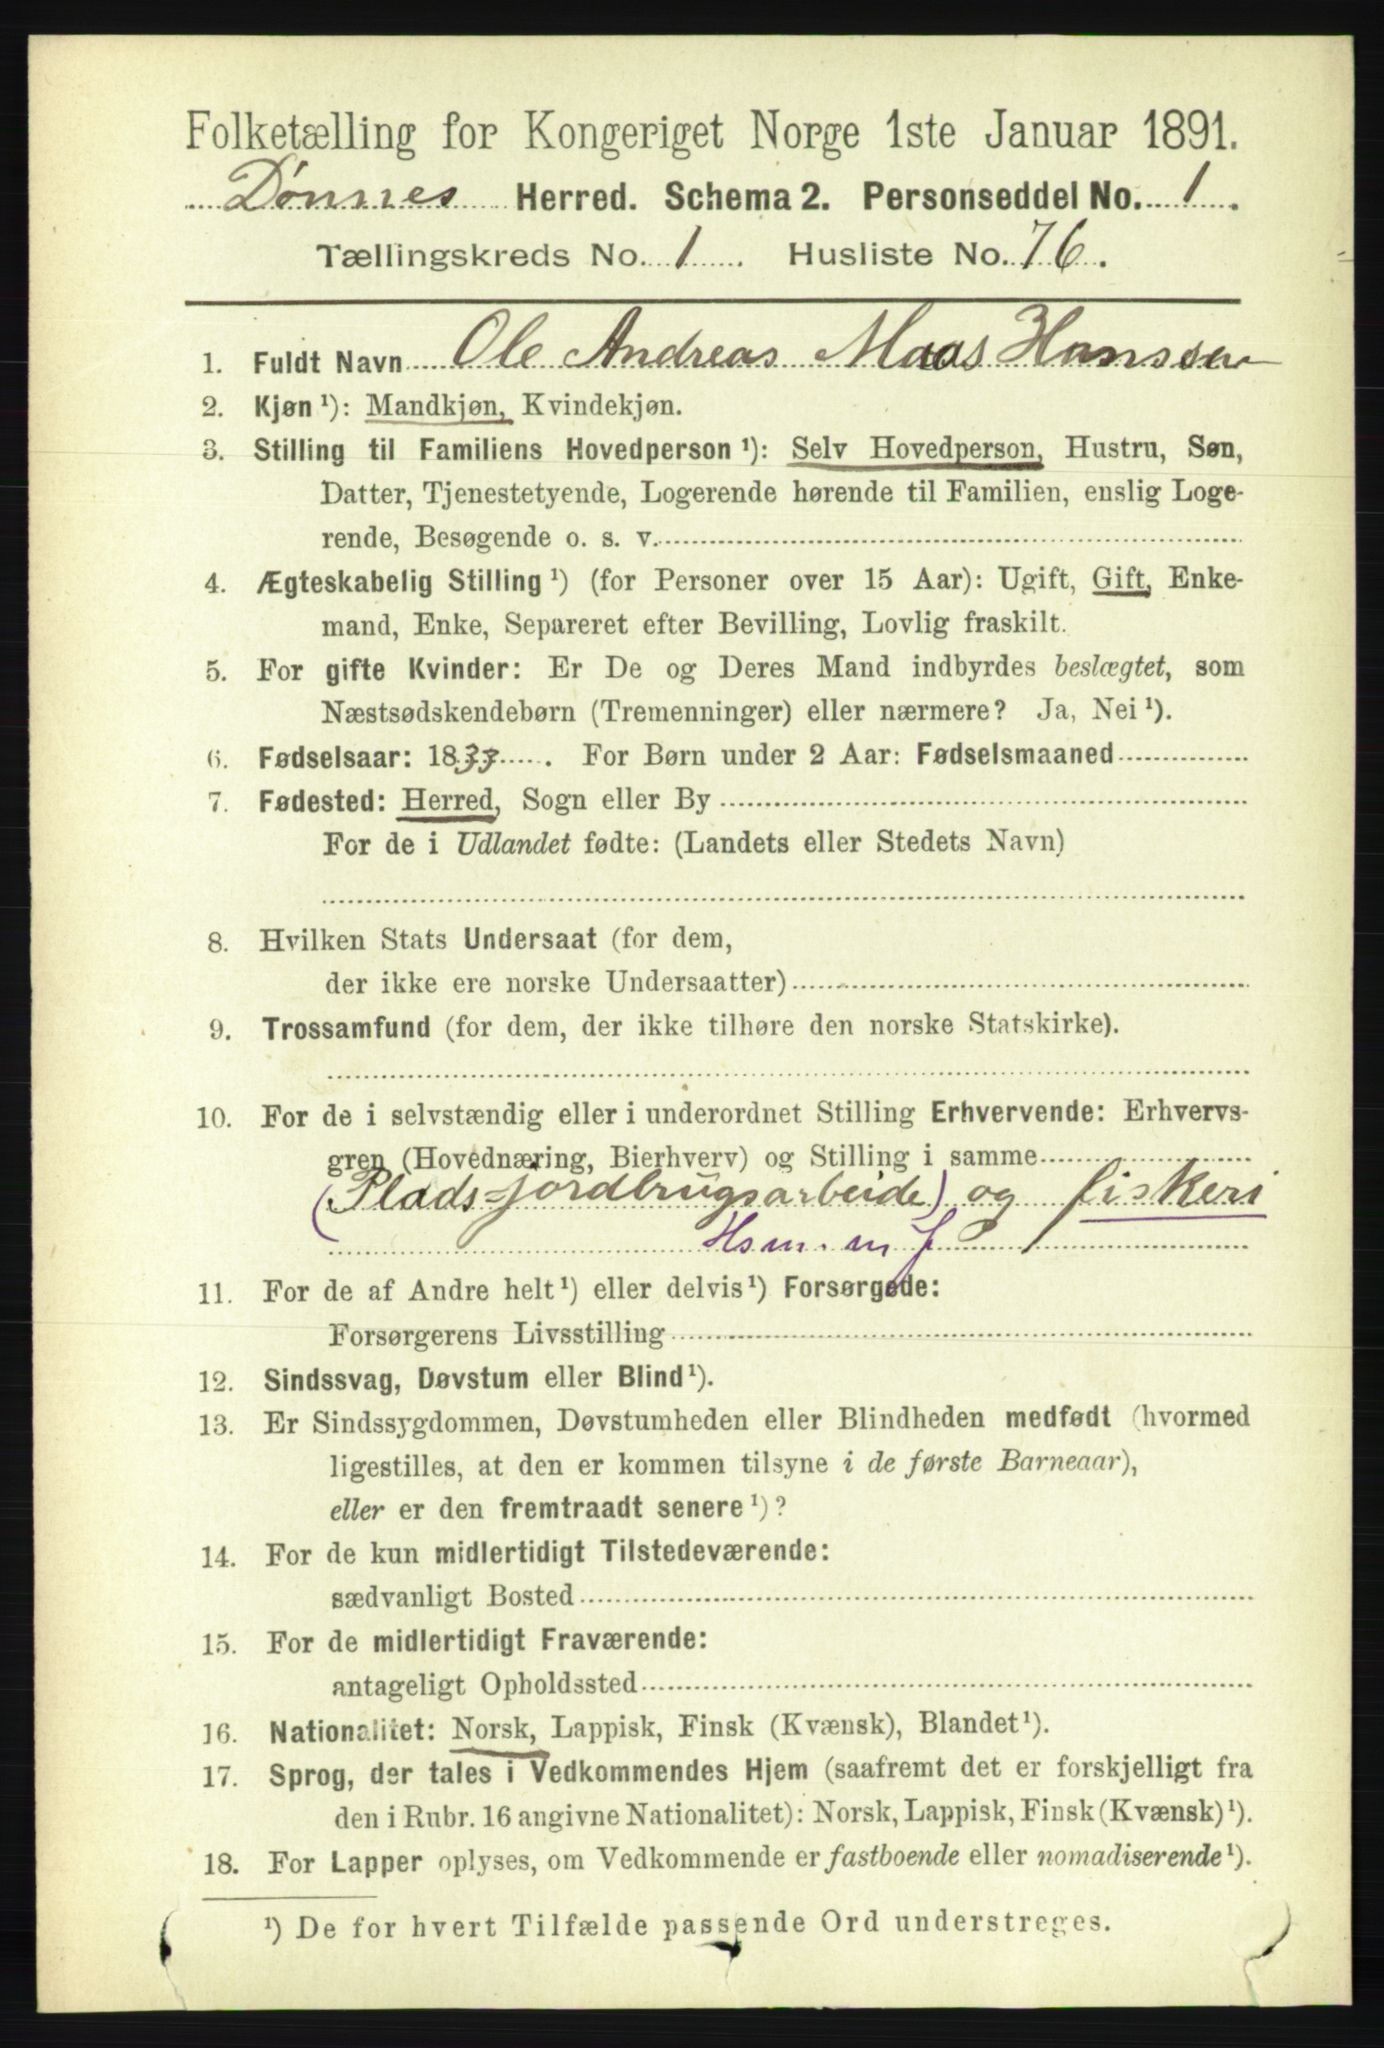 Folketælling for Kongeriget Norge 1ste Januar 1891.
Dønnes Herred. Schema 2. Personseddel No. 1.
Tællingskreds No. 1. Husliste No. 76.
1. Fuldt Navn Ole Andreas Maas Hanssen
2. Kjøn ¹): Mandkjøn, Kvindekjøn.
3. Stilling til Familiens Hovedperson ¹): Selv Hovedperson, Hustru, Søn,
Datter, Tjenestetyende, Logerende hørende til Familien, enslig Loge-
rende, Besøgende o. s. v.
4. Ægteskabelig Stilling ¹) (for Personer over 15 Aar): Ugift, Gift, Enke-
mand, Enke, Separeret efter Bevilling, Lovlig fraskilt.
5. For gifte Kvinder: Er De og Deres Mand indbyrdes beslægtet, som
Næstsødskendebørn (Tremenninger) eller nærmere? Ja, Nei ¹).
6. Fødselsaar: 1833. For Børn under 2 Aar: Fødselsmaaned
7. Fødested: Herred, Sogn eller By
For de i Udlandet fødte: (Landets eller Stedets Navn)
8. Hvilken Stats Undersaat (for dem,
der ikke ere norske Undersaatter)
9. Trossamfund (for dem, der ikke tilhøre den norske Statskirke).
10. For de i selvstændig eller i underordnet Stilling Erhvervende: Erhvervs-
gren (Hovednæring, Bierhverv) og Stilling i samme
(Plads-jordbrugsarbeide) og fiskeri
Hsm. m j
11. For de af Andre helt ¹) eller delvis ¹) Forsørgede:
Forsørgerens Livsstilling
12. Sindssvag, Døvstum eller Blind ¹).
13. Er Sindssygdommen, Døvstumheden eller Blindheden medfødt (hvormed
ligestilles, at den er kommen tilsyne i de første Barneaar),
eller er den fremtraadt senere ¹)?
14. For de kun midlertidigt Tilstedeværende:
sædvanligt Bosted
15. For de midlertidigt Fraværende:
antageligt Opholdssted
16. Nationalitet: Norsk, Lappisk, Finsk (Kvænsk), Blandet ¹).
17. Sprog, der tales i Vedkommendes Hjem (saafremt det er forskjelligt fra
den i Rubr. 16 angivne Nationalitet): Norsk, Lappisk, Finsk (Kvænsk) ¹).
18. For Lapper oplyses, om Vedkommende er fastboende eller nomadiserende ¹).
¹) De for hvert Tilfælde passende Ord understreges.